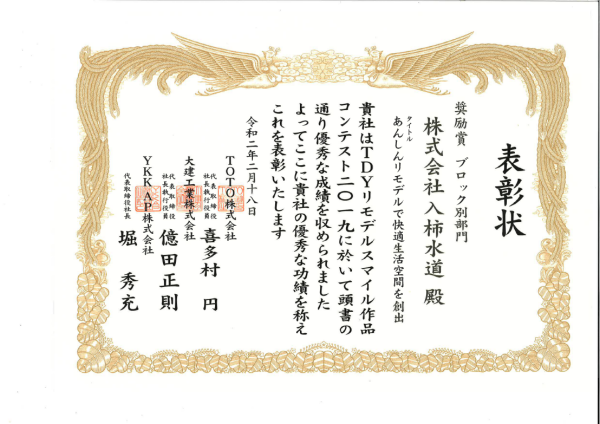 表彰状
奨励賞 ブロック別部門
株式会社入柿水道 殿
タイトル
あんしんリモデルで快適生活空間を創出
貴社はTDYリモデルスマイル作品
コンテスト二〇一九に於いて頭書の
通り優秀な成績を収められました
よってここに貴社の優秀な功績を称え
これを表彰いたします
令和二年二月十八日
TOTO株式会社
代表取締役
社長執行役員
喜多村 円
大建工業株式会社
代表取締役
社長執行役員
億田正則
YKK AP株式会社
代表取締役社長
堀 秀充